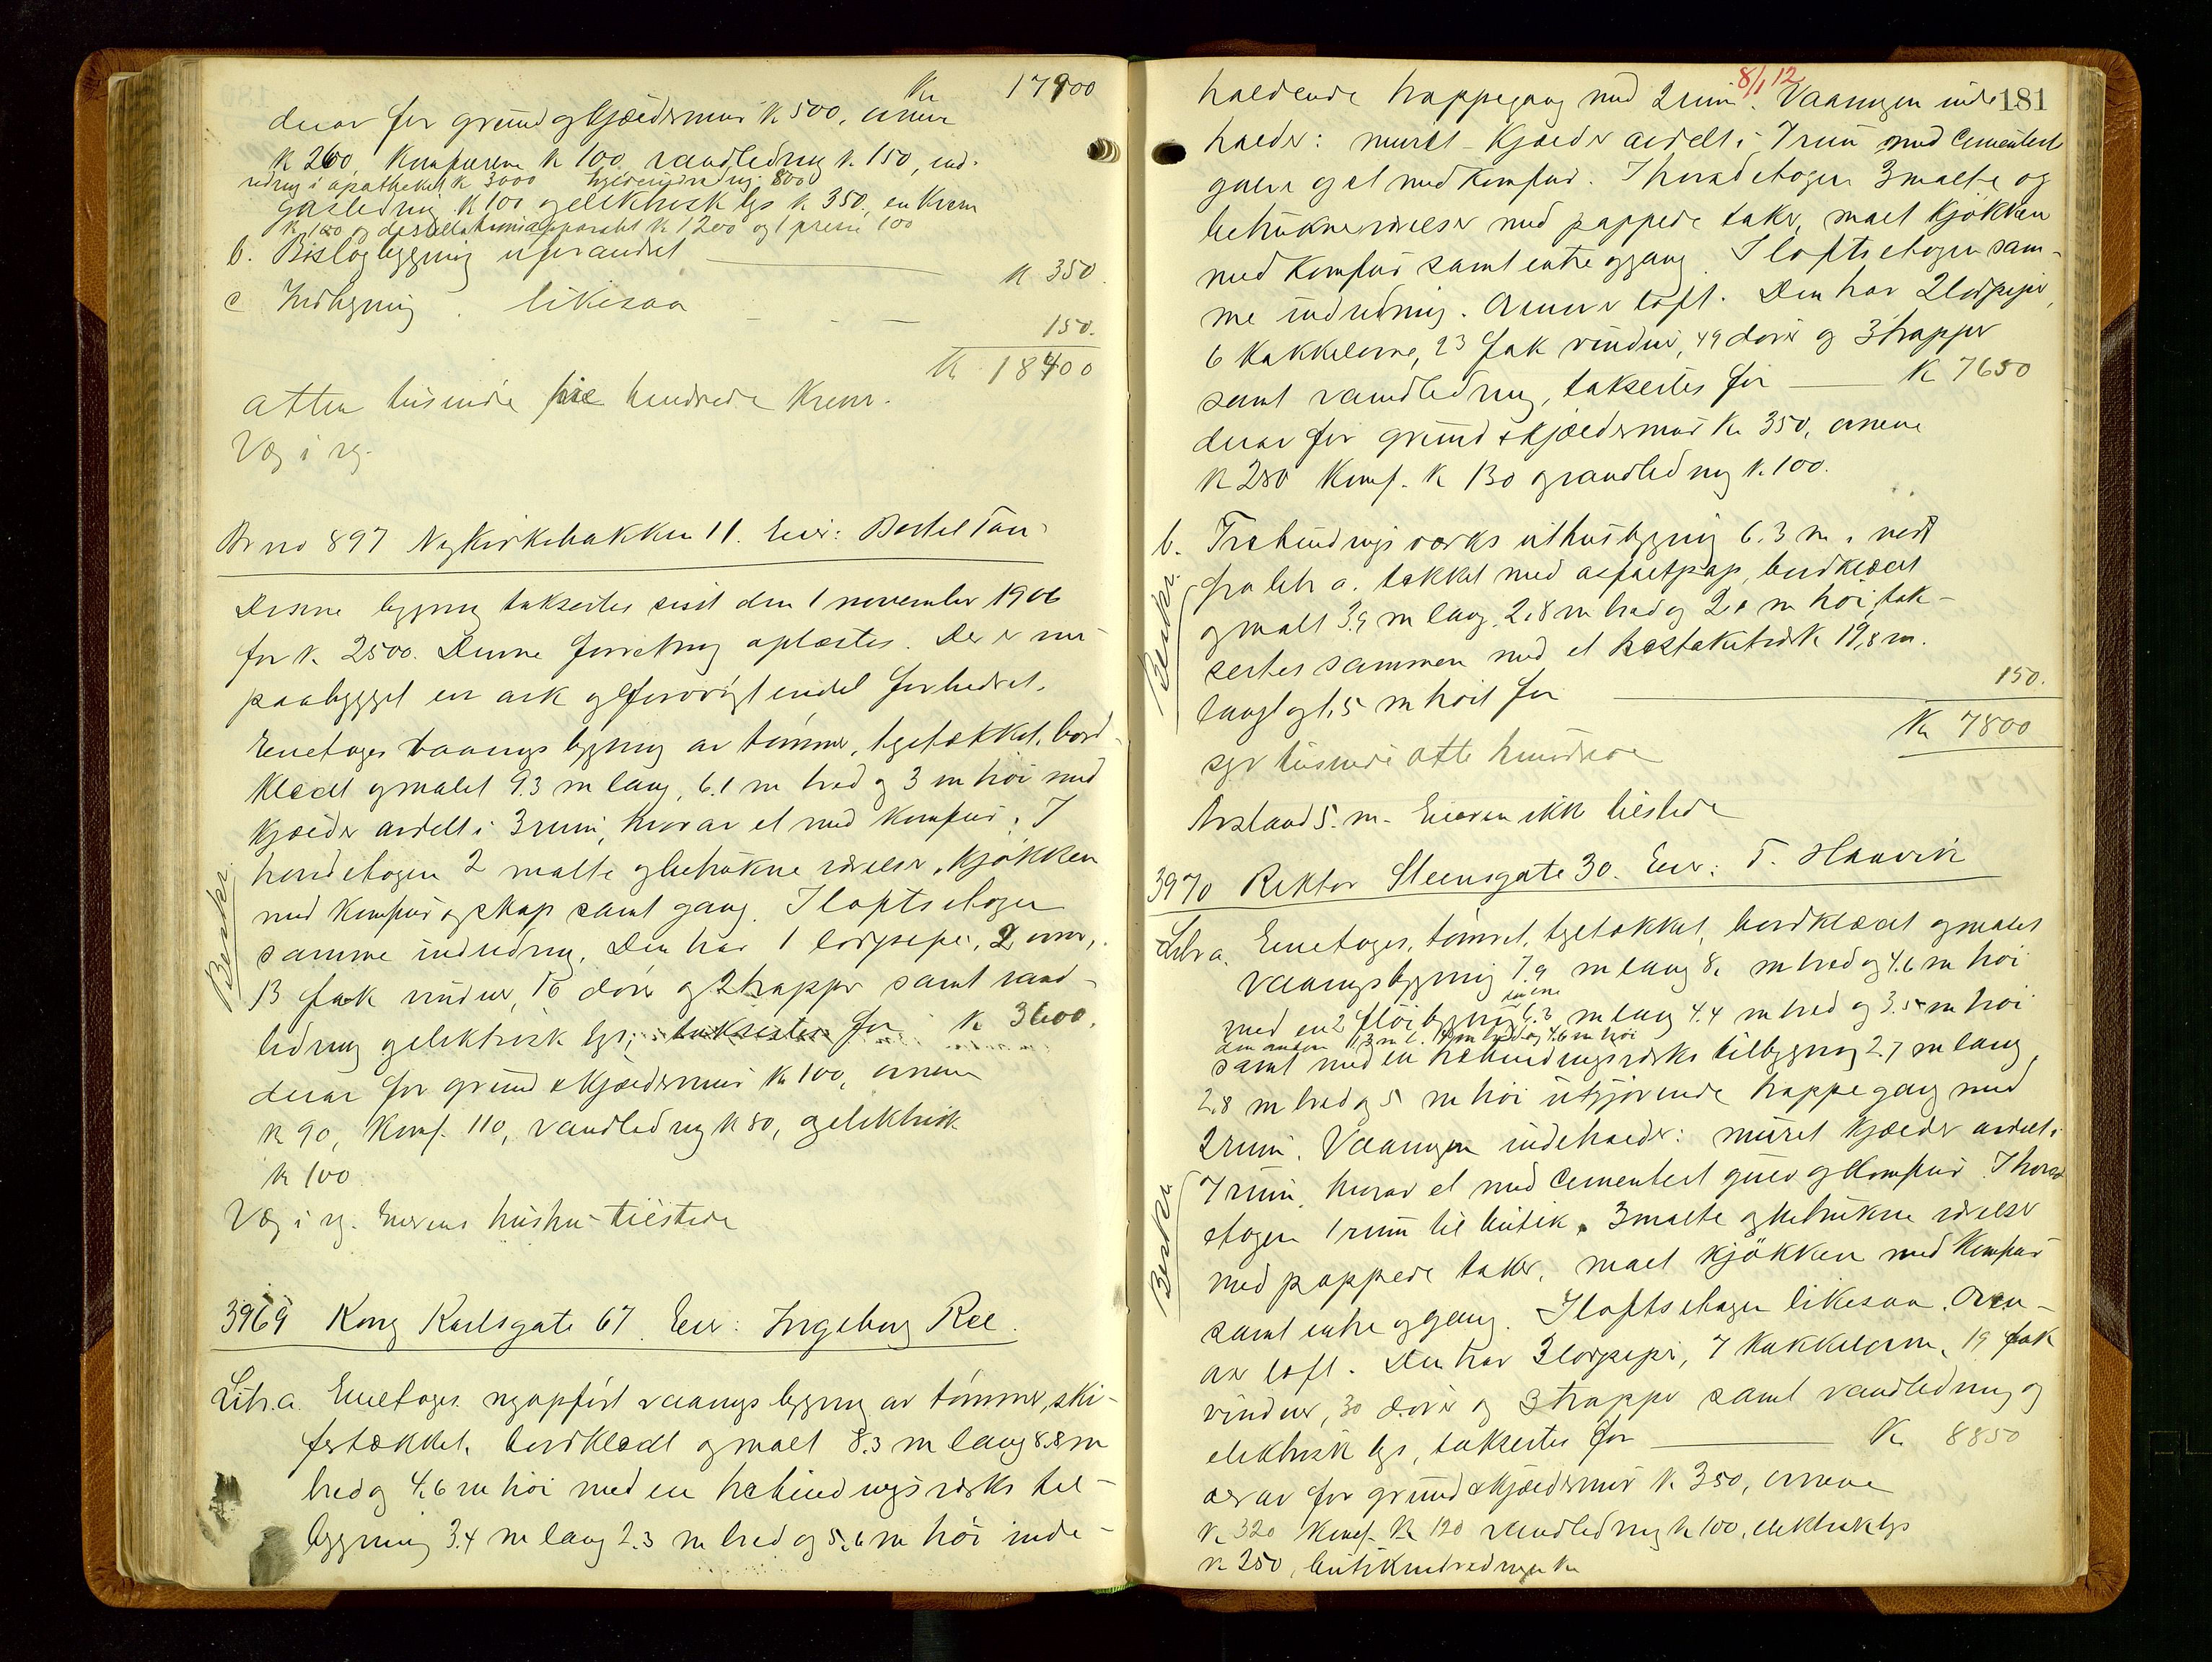 Kr 17900
derav for grund og kjældermur k 500, ovner
k 260, Komfurene k 100, vandledning k. 150, ind-
redning i apotheket k 3000 hyldeindredning 8000
gasledning k 100 og elektrisk lys k 350, en Kran
k 100 og destillationsapparatet k 1200 og 1 presse 100
b. Bislagbygning uforandret k 350.
c Indhegning . likesaa 150.
k 18400
atten tusinde fire hundrede Kroner.
Væg i vg.
Br no 897 Nykirkebakken 11. Eier: Bertel Tau
Denne bygning takseertes sidst den 1 november 1906
for k. 2500. Denne forretning oplæstes. Der er nu
paabygget en ark og forøvrigt endel forbedret.
Enetages vaanings bygning av tømmer, tegltækket, bord-
klædt og malet 9.3 m lang, 6.1 m bred og 3 m høi med
kjælder avdelt i 3 rum, hvorav et med komfur. I
hovedetagen 2 malte og betrukne værelser, kjøkken
med komfur og skap samt gang. I loftsetagen
samme indredning. Den har 1 lodpipe, 2 ovner,
13 fak vinduer, 16 dører og 2 trapper samt vand-
ledning og elektrisk lys, taksertes for k 3600.
derav for grund & kjældermur k 100, ovnene
k 90, Komf. 110, vandledning k 80, og elektrisk
k 100
Væg i vg. Eierens hustru tilstede
Beskr.
3969 Kong Karlsgate 67. Eier: Ingeborg Ree.
Litr. a. Enetages nyopført vaanings bygning av tømmer, ski-
fertækket, bordklædt og malt 8.3 m lang 8.8 m
bred og 4.6 m høi med en trebindingsverks til-
bygning 3.4 m lang 2.3 m bred og 5.6 m høi inde-
8/1 12
181
holdende trappegang med 2 rum. Vaaningen inde-
holder: muret Kjælder avdelt i 7 rum med Cementert
gulv og et med Komfur. I hovedetagen 3 malte og
betrukne værelser med pappede taker, malt kjøkken
med komfur samt entre og gang. I loftsetagen sam-
me indredning. Ovener loft. Den har 2 lodpiper,
6 kakkelovne, 23 fak vinduer, 49 dører og 3 trapper
samt vandledning, taksertes for k 7650
derav for grund & kjældermur k. 350, ovnene
k 280 Komf. k 130 og vandledning k. 100.
b. Trebindingsverks uthusbygning 6.3 m i nord
fra litr a. tækket med asfaltpap, bordklædt
og malt 3.9 m lang, 2.8 m bred og 2.1 m høi, tak-
sertes sammen med et hestekitrak 19,8 m.
langt og 1.5 m høit for 150.
Kr 7800
syv tusinde otte hundrede
Avstand 5. m. Eieren ikke tilstede
Beskr.
3970 Rektor Steensgate 30. Eier: T. Haavik
Litr a. Enetages, tømret, tegltækket, bordklædt og malet
vaaningsbygning 7.9 m lang 8. m bred og 4.6 m høi
med en 2 fløibygning den ene 6.3 m lang 4.4 m bred og 3.5 m høi
den anden 11.3 m l. 4 m bred og 4.6 m høi
samt med en trebindingsverks tilbygning 2.7 m lang,
2.8 m bred og 5 m høi utgjørende trappegang med
2 rum. Vaaningen indeholder: muret kjælder avdelt i
7 rum, hvorav et med Cementert gulv og Komfur. I hoved
etagen 1 rum til butik. 3 malte og betrukne værelser
med pappede taker, malt kjøkken med Komfur
samt entre og gang. I loftsetagen likesaa. Oven-
over loft. Den har 3 lodpiper, 7 Kakkelovne, 19 fak
vinduer, 30 dører og 3 trapper samt vandledning og
elektrisk lys, taksertes for Kr 8850
derav for grund & kjældermur k. 350, ovnene
k. 320 Komf. k 120 vandledning k 100, elektrisk lys
k 250, butikindredningen kr
Beskr.